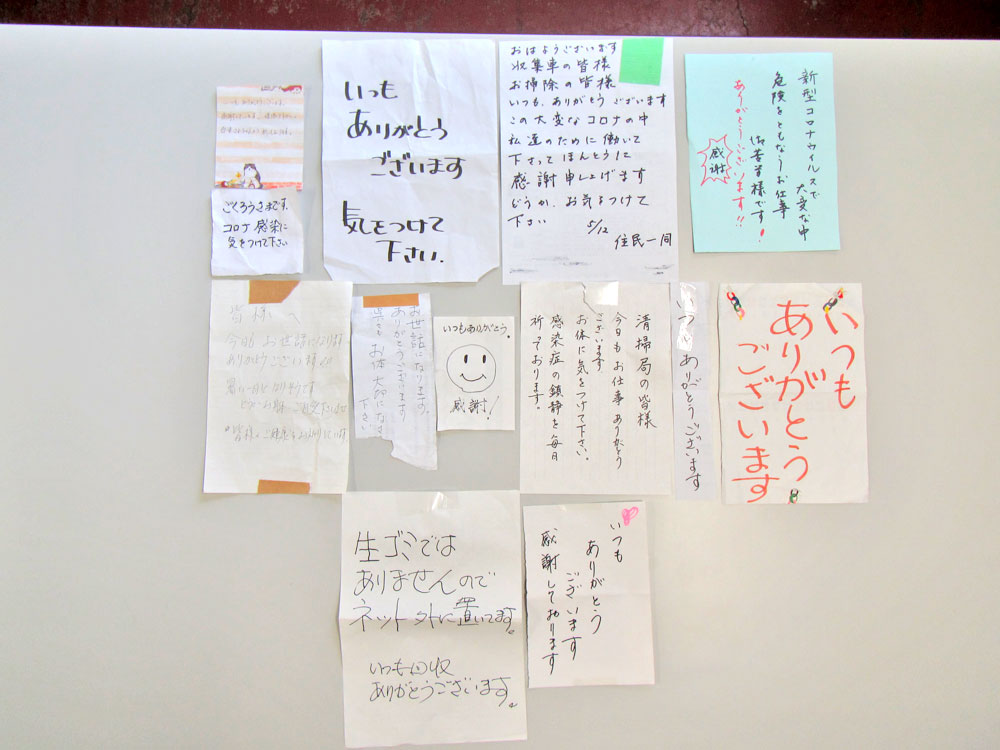 ごくろうさまです。
コロナ感染に
気をつけて下さい
いつも
ありがとう
ございます
気をつけて
下さい.
おはようございます
収集車の皆様
お掃除の皆様
いつも、ありがとうございます
この大変なコロナの中
私達のために働いて
下さってほんとうに
感謝申し上げます
どうか、お気をつけて
下さい 5/12
住民一同
新型コロナウイルスで
大変な中
危険をともなうお仕事
御苦労様です!
ありがとうございます!!
感謝
皆様へ
今日もお世話になります
お世話になります。
ありがとうございます
お体大切になさって
下さい
いつもありがとう。
感謝!
清掃局の皆様
今日もお仕事ありがとう
ございます
お体に気をつけて下さい。
感染症の鎮静を毎日
祈っております。
いつもありがとうございます
いつも
ありがとう
ございます
生ゴミでは
ありませんので
ネット外に置いてます。
いつも回収
ありがとうございます。
いつも
ありがとう
ございます
感謝しております